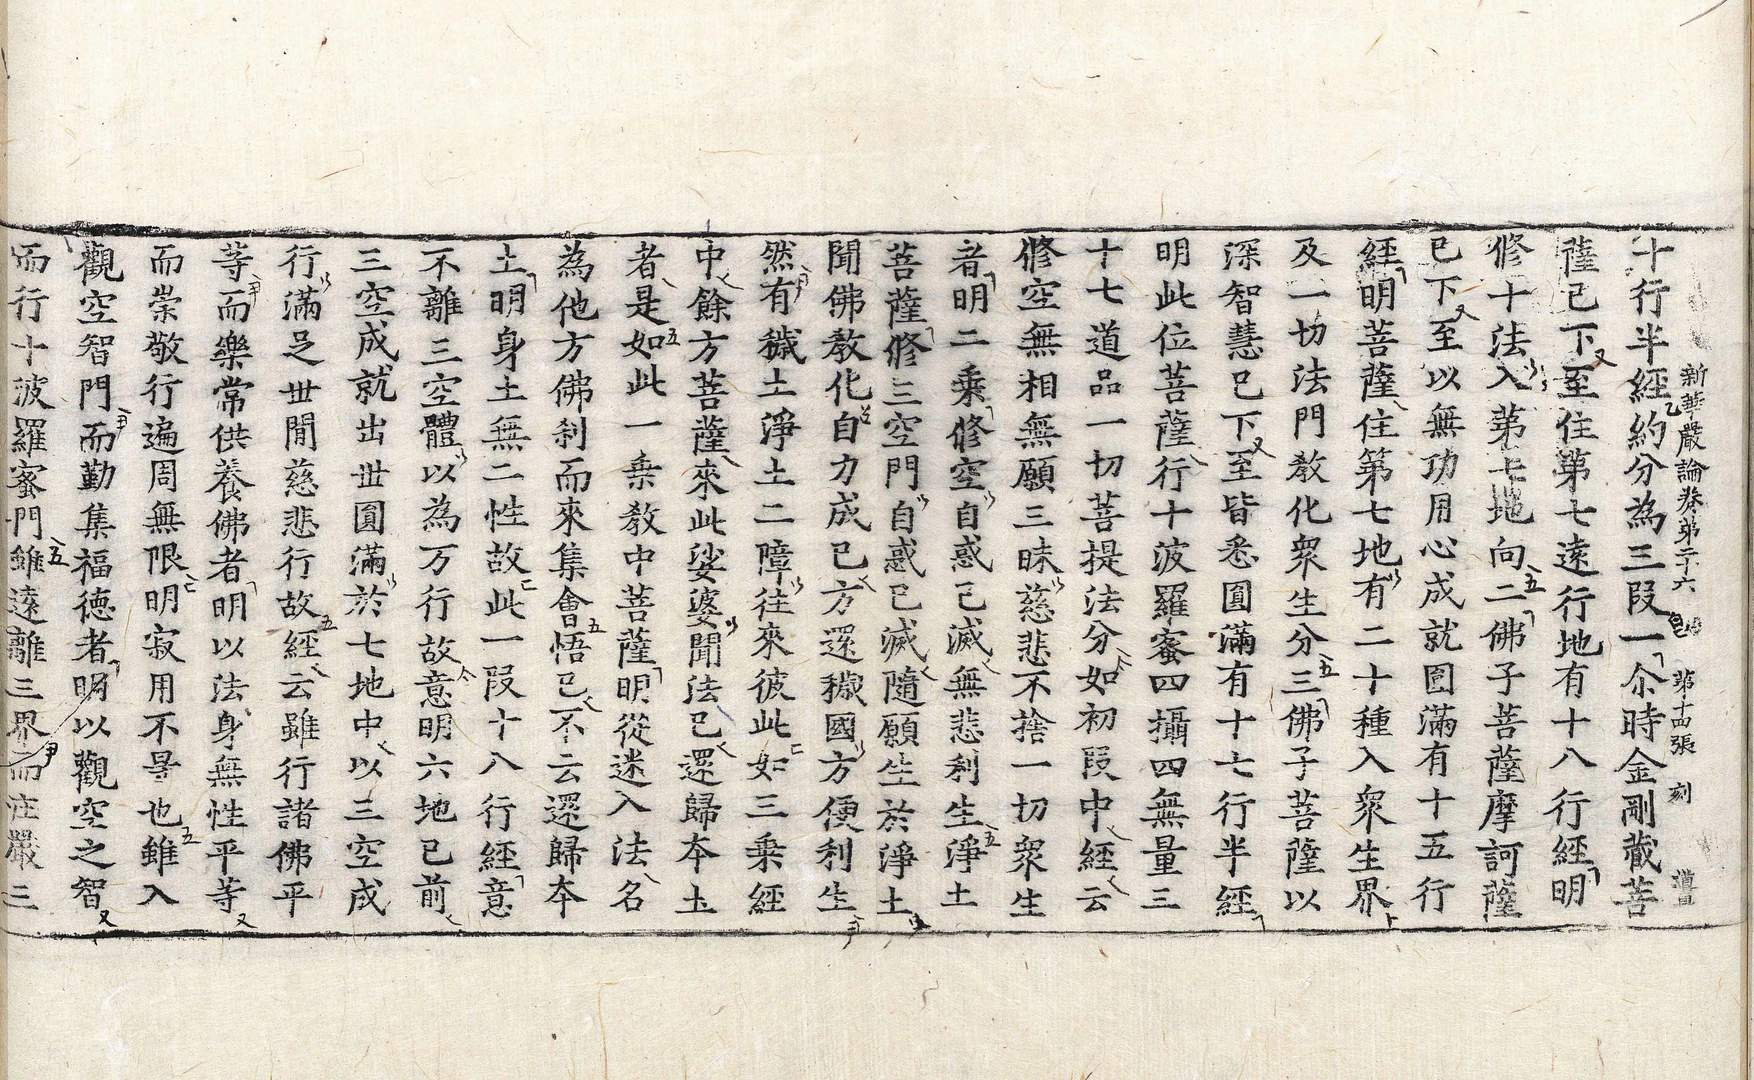 新華嚴論卷第二十六 第十四張 刻
十行半經約分為三段一尒時金剛藏菩
薩已下至住第七遠行地有十八行經明
修十法入第七地向二佛子菩薩摩訶薩
已下至以無功用心成就圓滿有十五行
經明菩薩住第七地有二十種入衆生界
及一切法門教化衆生分三佛子菩薩以
深智慧已下至皆悉圓滿有十七行半經
明此位菩薩行十波羅蜜四攝四無量三
十七道品一切菩提法分如初段中經云
修空無相無願三昧慈悲不捨一切衆生
者明二乘修空自惑已滅無悲利生淨土
菩薩修三空門自惑已滅隨願生於淨土
聞佛教化自力成已方還穢國方便利生
然有穢土淨土二障往來彼此如三乘經
中餘方菩薩來此娑婆聞法已還歸夲土
者是如此一乗教中菩薩明從迷入法名
為他方佛刹而來集會悟已不云還歸夲
土明身土無二性故此一段十八行經意
不離三空體以為万行故意明六地已前
三空成就出世圓滿於七地中以三空成
行滿足世間慈悲行故經云雖行諸佛平
等而樂常供養佛者明以法身無性平等
而崇敬行遍周無限明寂用不㝵也雖入
觀空智門而勤集福德者明以觀空之智
而行十波羅蜜門雖遠離三界而莊嚴三